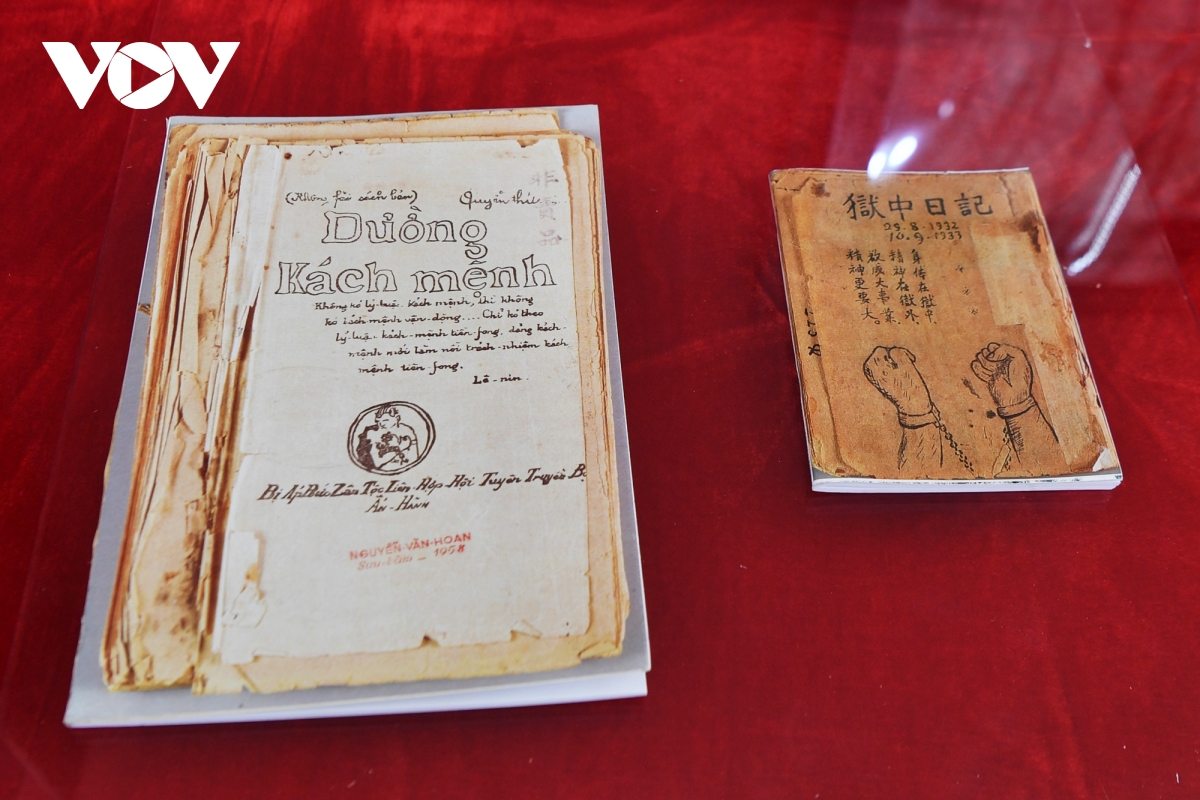 VOV
(Không fải sách bán)
Quyển thứ
非賣品
Đường
Kách mệnh
Không kó lý-luận kách mệnh, thì không
kó kách mệnh vận-động.... Chỉ kó theo
lý-luận kách-mệnh tiên-fong, đảng kách-
mệnh mới làm nổi trách-nhiệm kách
mệnh tiên-fong.
Lê-nin.
Bị Áp Bức Zân Tộc Liên-Hiệp Hội Tuyên Truyền Bộ
Ấn-Hành
NGUYỄN-VĂN-HOAN
Sưu-tầm _ 1958
獄中日記
29.8.1932
10.9.1933
身体在獄中,
精神在獄外,
欲成大事業,
精神更要大。